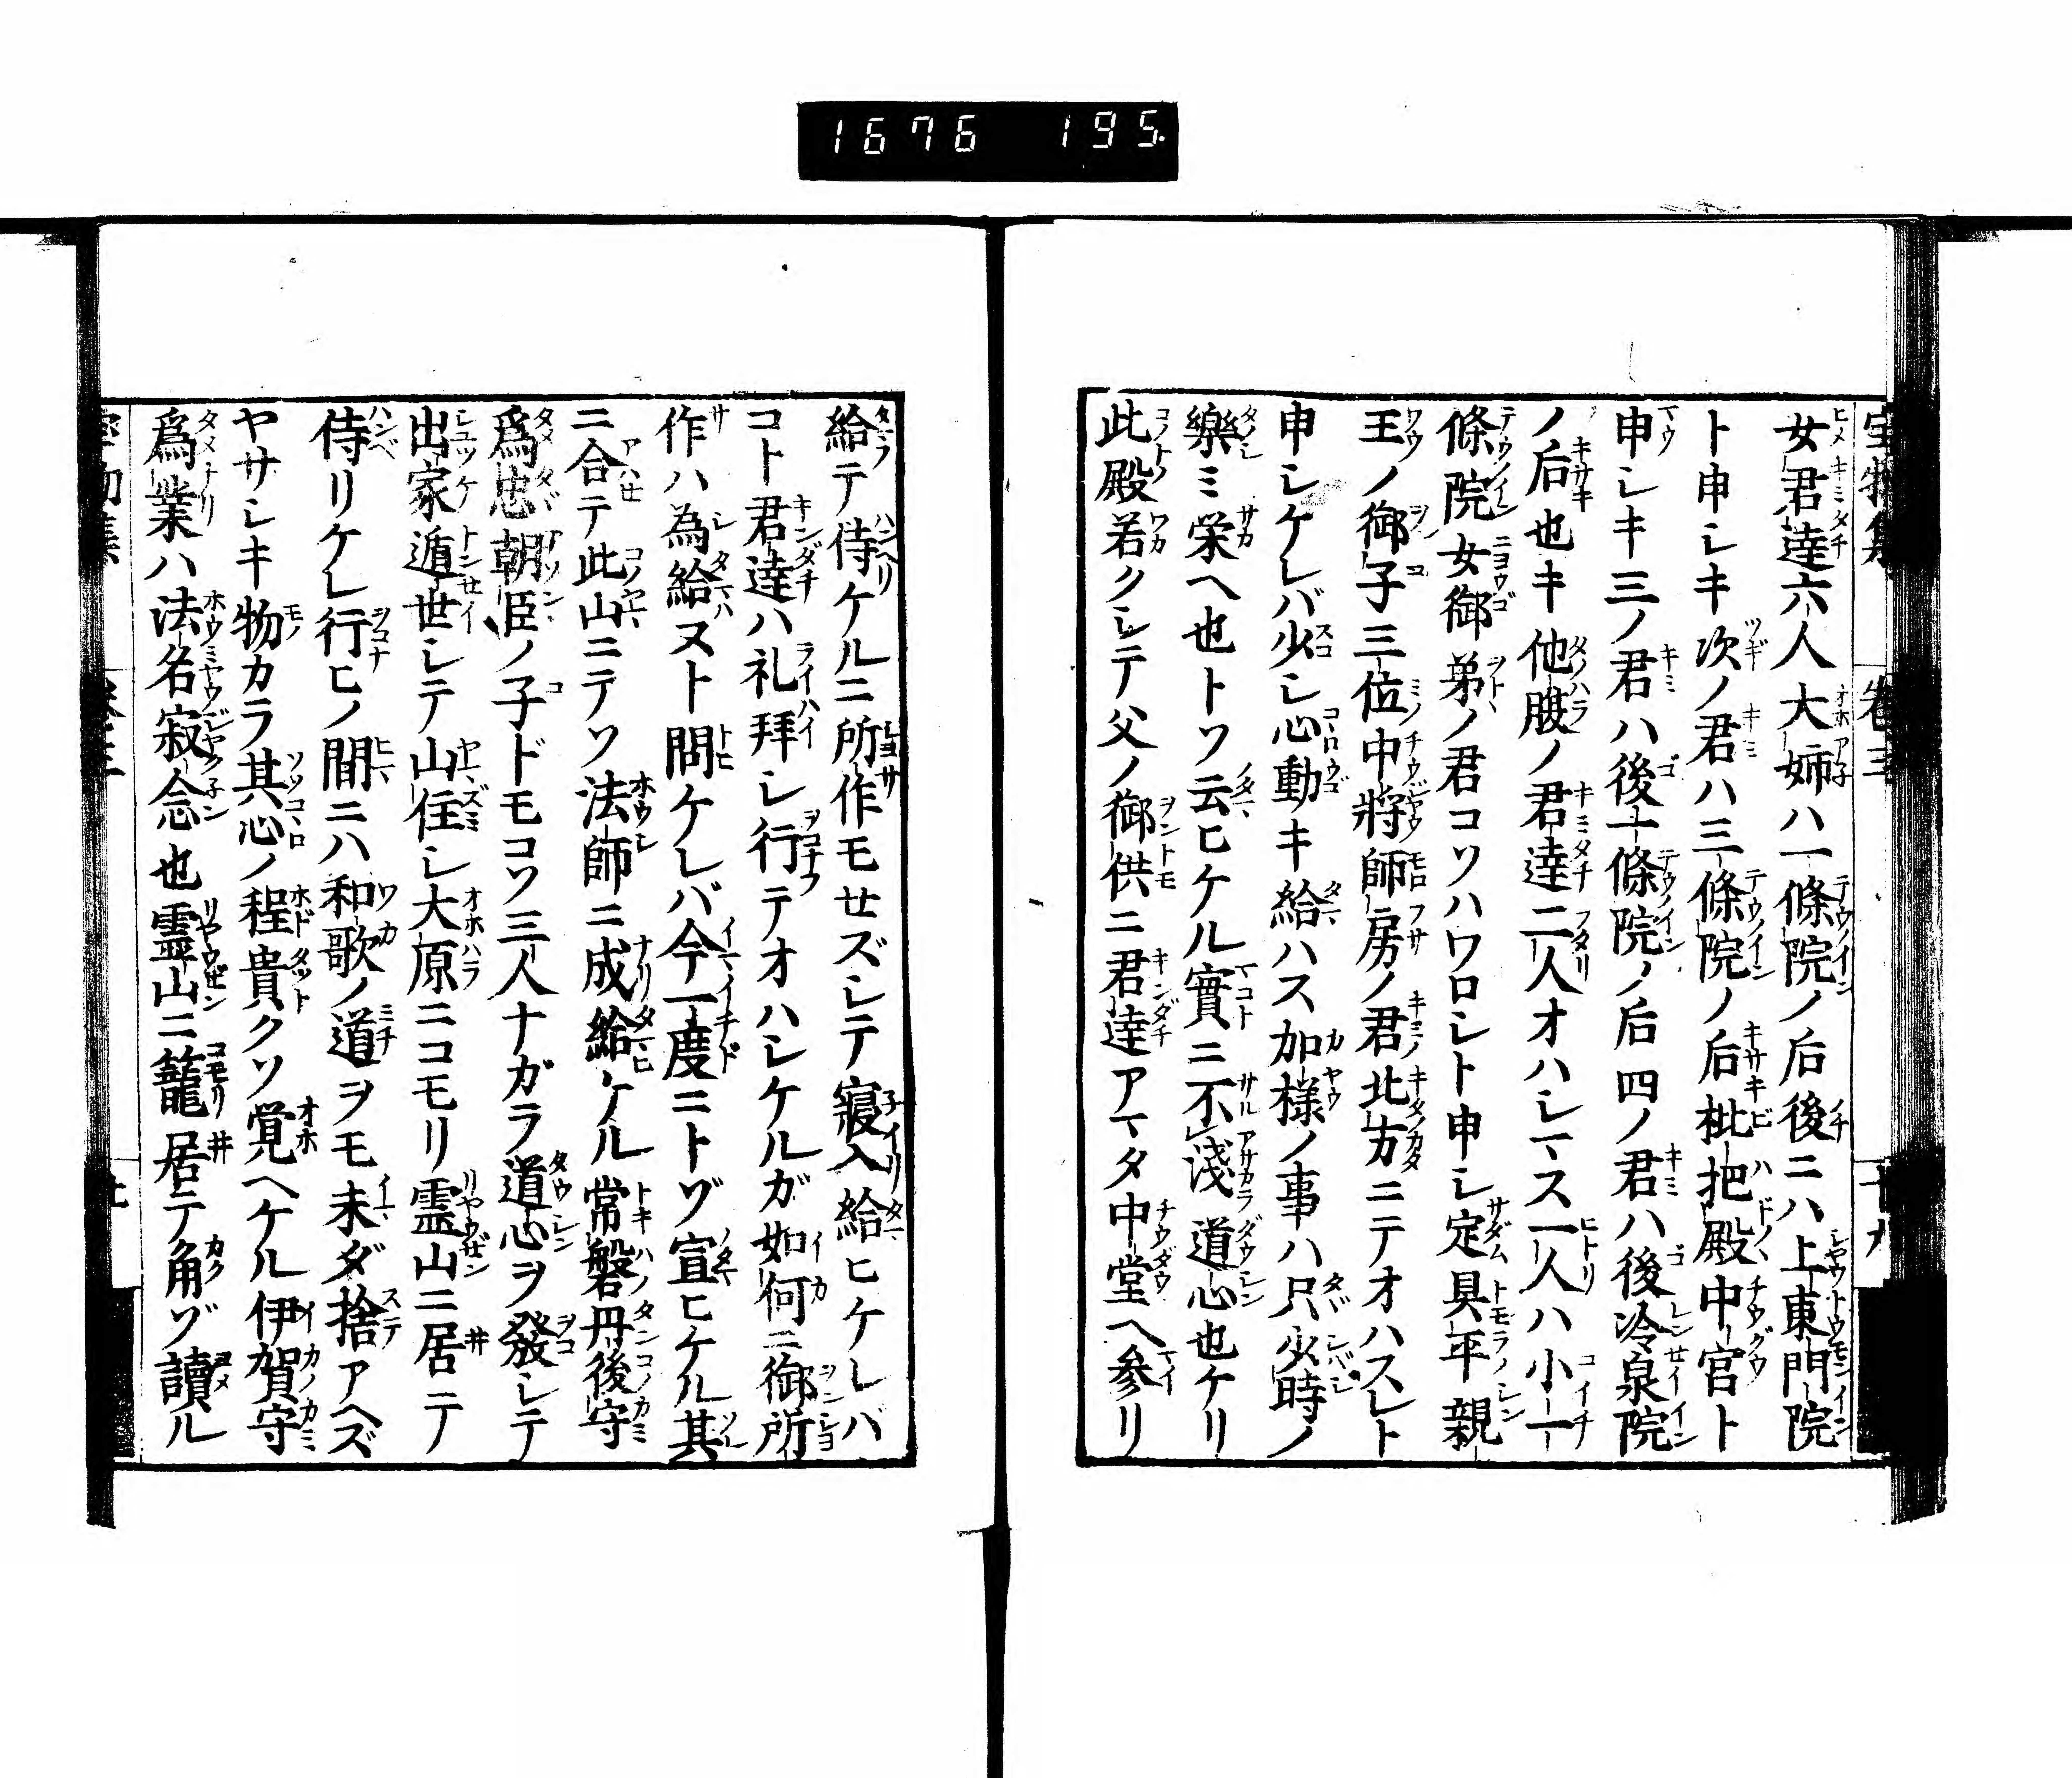 1676 195.
女君達六人大姉ハ一條院ノ后後ニハ上東門院
ト申シキ次ノ君ハ三條院ノ后枇把殿中宮ト
申シキ三ノ君ハ後一條院ノ后四ノ君ハ後冷泉院
ノ后也キ他腹ノ君達二人オハシマス一人ハ小一
條院女御弟ノ君コソハワロシト申シ定具平親
王ノ御子三位中將師房ノ君北方ニテオハスレト
申シケレバ少シ心動キ給ハス加樣ノ事ハ只少時ノ
樂ミ栄ヘ也トソ云ヒケル實ニ不淺道心也ケリ
此殿若クシテ父ノ御供ニ君達アマタ中堂ヘ参リ
給テ侍ケルニ所作モセズシテ寢入給ヒケレバ
コト君達ハ礼拜シ行テオハシケルガ如何ニ御所
作ハ為給ヌト問ケレバ今一度ニトゾ宣ヒケル其
ニ合テ此山ニテソ法師ニ成給ケル常磐丹後守
爲忠朝臣ノ子ドモコソ三人ナガラ道心ヲ發シテ
出家遁世シテ山住シ大原ニコモリ霊山ニ居テ
侍リケレ行ヒノ間ニハ和歌ノ道ヲモ未ダ捨アヘズ
ヤサシキ物カラ其心ノ程貴クソ覚ヘケル伊賀守
爲業ハ法名寂念也霊山ニ籠居テ角ゾ讀ル